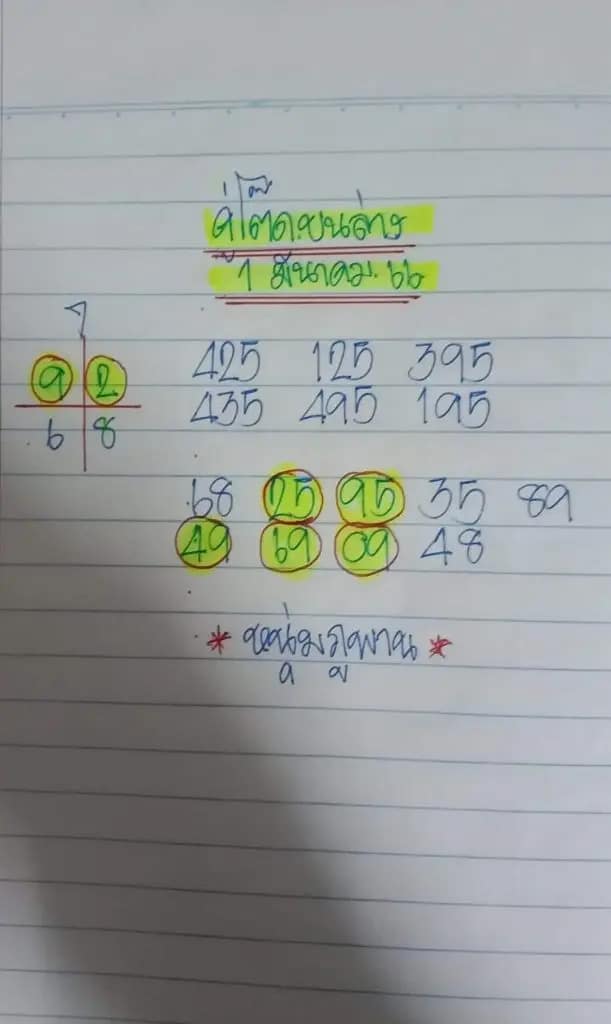 คู่โต๊ดบนล่าง
1 มีนาคม. 66
425 125 395
9 2
435 495 195
6 8
68 25 95 35 89
49 69 09 48
* หนุ่มภูพาน *